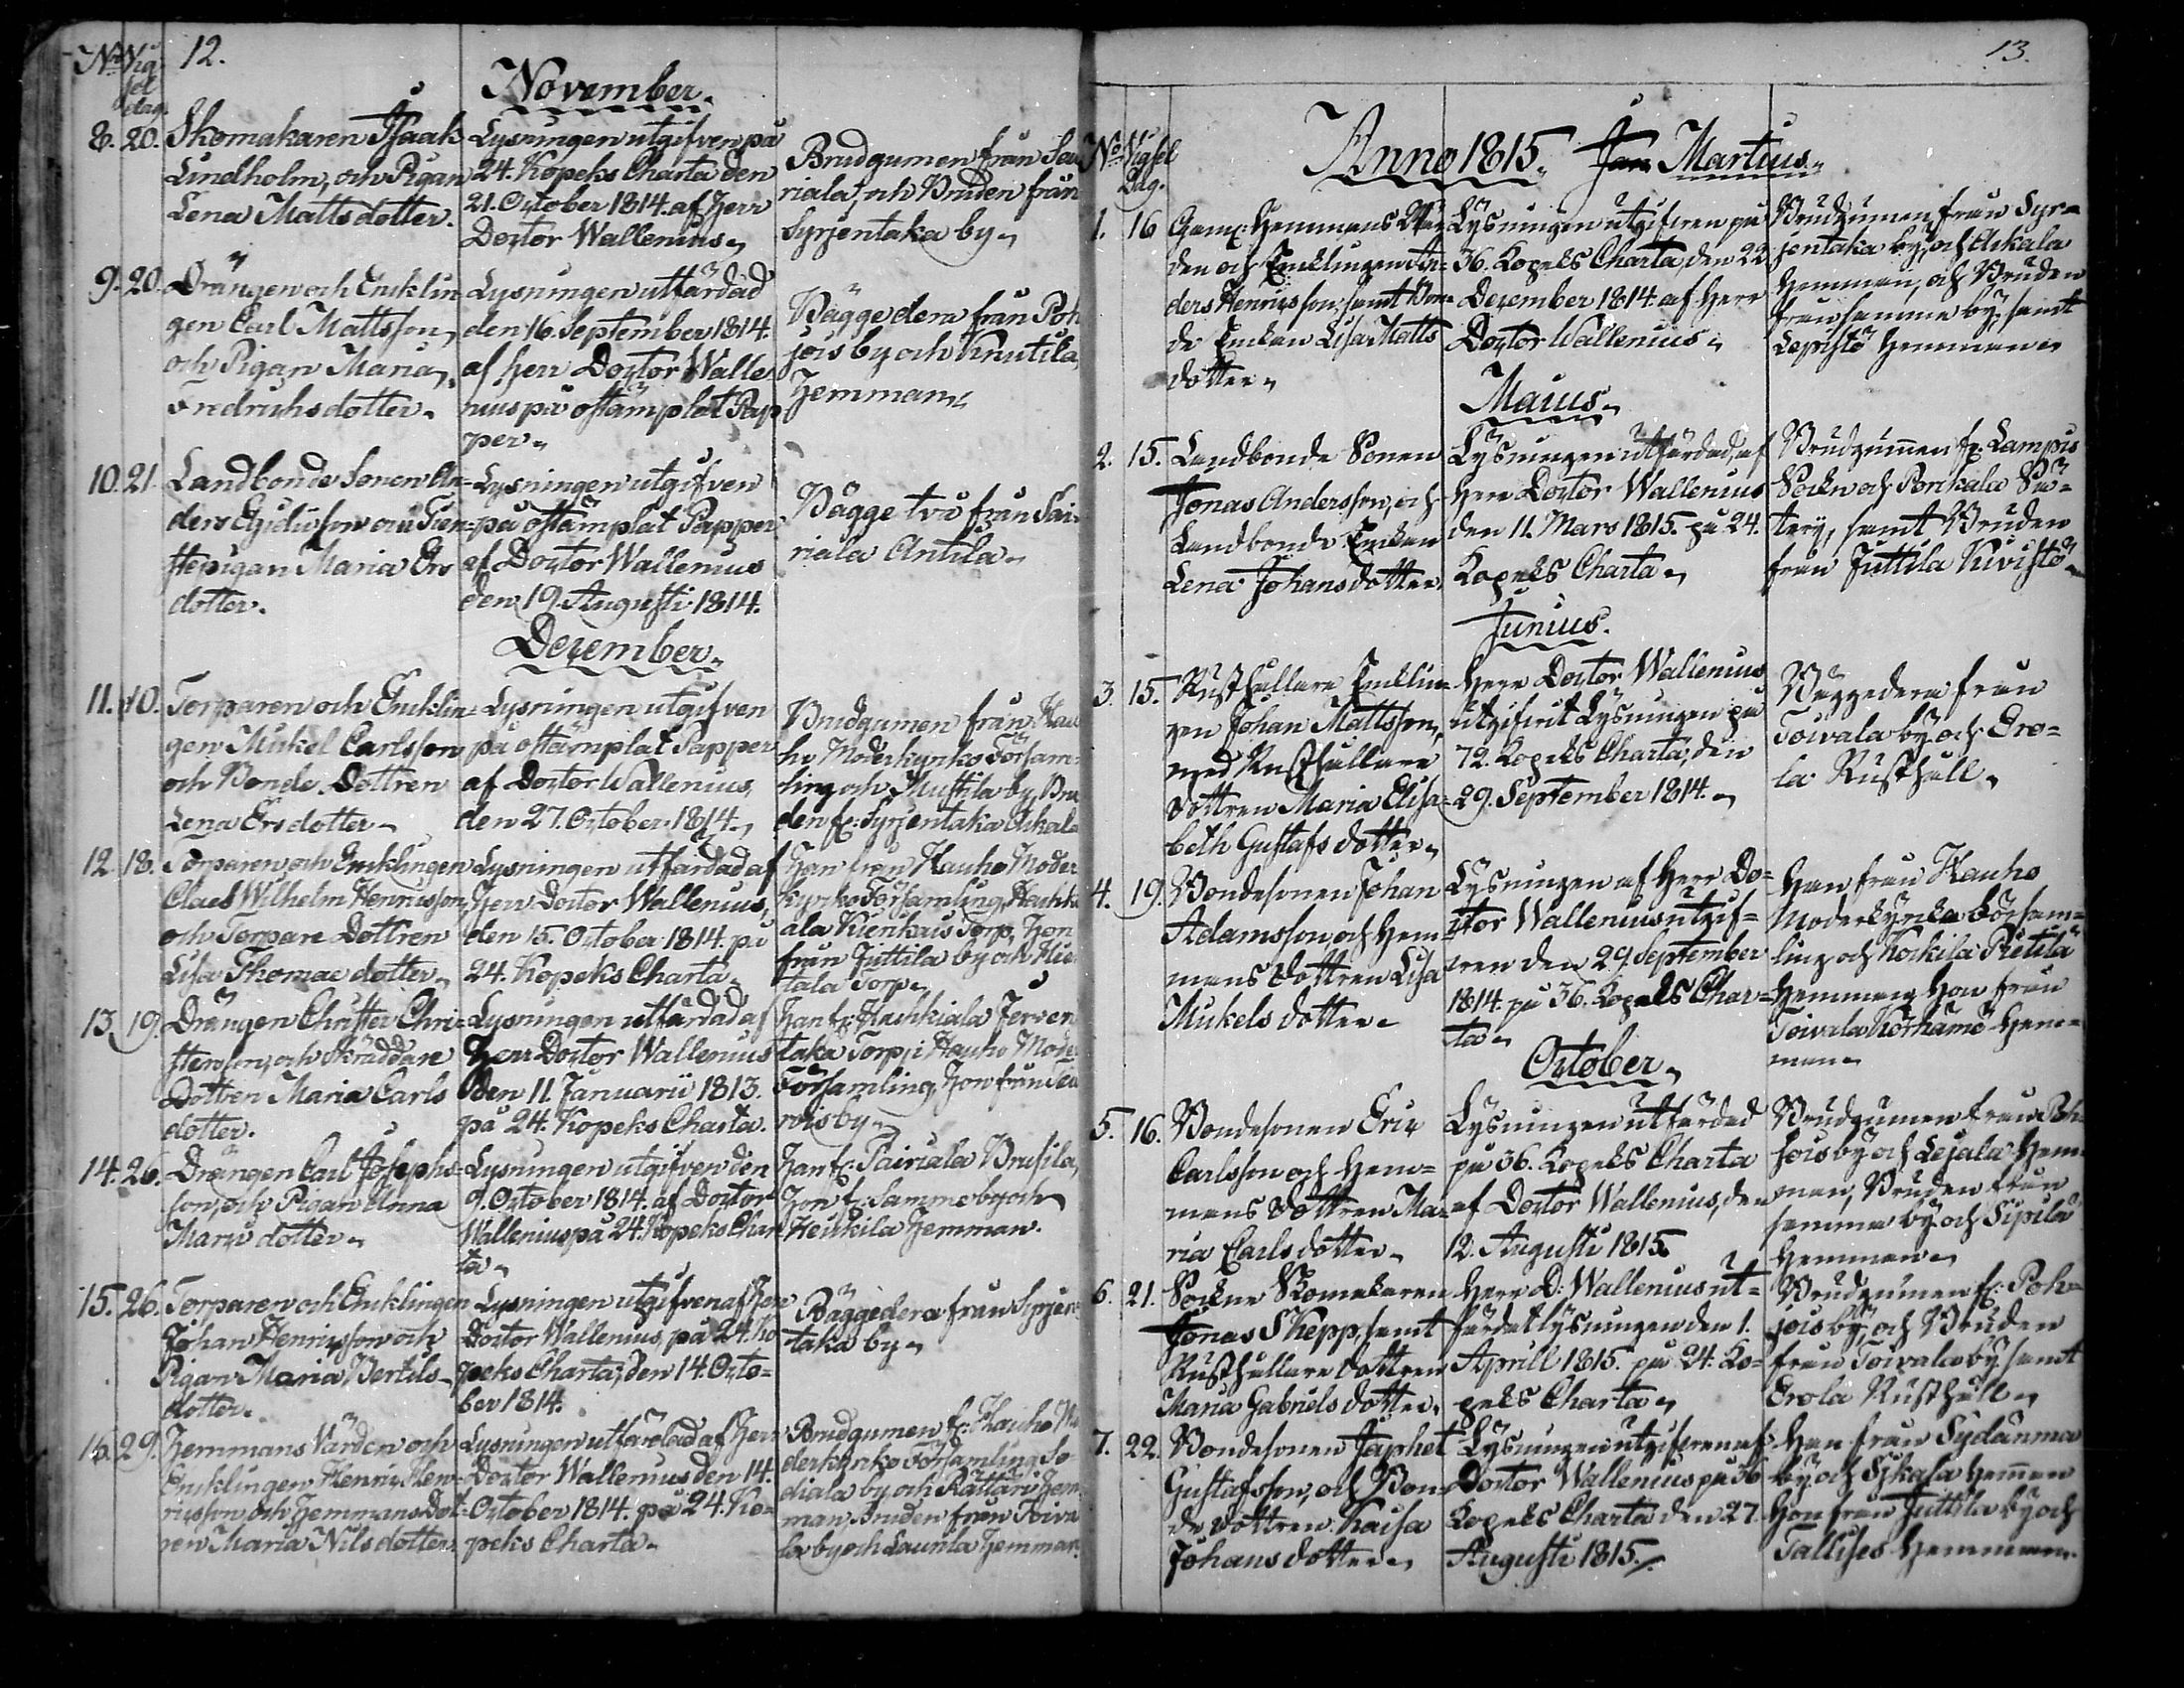 12.
No Vig
sel
dag.
November.
8. 20. Skomakaren Isaak
Lindholm, och Pigan
Lena Mattsdotter.
Lysningen utgifven på
24. Kopeks Charta den
21. October 1814. af Herr
Doctor Wallenius
Brudgumen från Sai
riala, och Bruden från
Syrjentaka by
9. 20. Drängen och Encklin
gen Carl Mattsson,
och Pigan Maria
Fredrichsdotter.
Lysningen utfärdad
den 16. September 1814.
af Herr Doctor Walle
nius på ostämplat Pap
per
Bägge dera från Poh
jois by och Knutila
Hemman
10. 21. Landbonde Sonen An-
ders Egidiison och Tien-
stepigan Maria Ers
dotter.
Lysningen utgifven
på ostämplat Papper
af Doctor Wallenius
den 19. Augusti 1814.
Bägge två från Sai-
riala Antila
December
11. 10. Torparen och Encklin-
gen Mickel Carlsson
och Bonde Dottren
Lena Ersdotter
Lysningen utgifven
på ostämplat Papper
af Doctor Wallenius,
den 27. October 1814.
Brudgumen från Hau
ho Moderkyrko Försam-
ling och Muttila by, Bru
den fr: Syrjentaka Ackala
12. 18. Torparen och Encklingen
Claes Wilhelm Henricsson,
och Torpare Dottren
Lisa Thomae dotter
Lysningen utfärdad af
Herr Doctor Wallenius,
den 15. October 1814. på
24. Kopeks Charta
Han från Hauho Moder
kyrko Församling, Hachki
ala Kuenhais Torp, Hon
från Juttila by och Hie
tala Torp
13. 19. Drängen Christer Chri-
sterson, och Skräddare
Dottren Maria Carls
dotter.
Lysningen utfärdad af
Herr Doctor Wallenius
den 11. Januarii 1813.
på 24. Kopeks Charta.
Han fr: Hachkiala Jerven
taka Torp, i Hauho Moder
Församling, Hon från
rois by
14. 26. Drängen Carl Josephs-
son, och Pigan Anna
Maria dotter
Lysningen utgifven den
9. October 1814. af Doctor
Wallenius på 24. Kopeks Char
ta
Han fr: Sairiala Brusila,
Hon f: Samma by och
Heickila Hemman.
15. 26. Torparen och Encklingen
Johan Henricsson och
Pigan Maria Bertils-
dotter.
Lysningen utgifven af Herr
Doctor Wallenius, på 24. Ko
peks Charta, den 14. Octo-
ber 1814.
Bägge dera från Syrjen-
taka by
16. 29. Hemmans Värden och
Encklingen Henric Hen-
ricsson, och Hemmans Dot-
ren Maria Nilsdotter
Lysningen utfärdad af Herr
Doctor Wallenius den 14.
October 1814. på 24. Ko-
peks Charta
Brudgumen f: Hauho Mo
derkyrko Församling So-
diala by och Rättäri Hem
man, Bruden från Toiva
la by och Launla Hemman.
13.
No Vigsel
Dag.
Anno 1815. Jan Martius
1. 16 Gam: Hemmans Vär
den och Encklingen An-
ders Henricsson, samt Bon-
de Enckan Lisa Matts
dotter
Lysningen utgifven på
36. Kopeks Charta, den 22
December 1814. af Herr
Doctor Wallenius
Brudgumen från Syr-
jentaka by, och Ackala
Hemman, och Bruden
från samma by, samt
Lepistö Hemman
Maius
2. 15. Landbonde Sonen
Jonas Andersson, och
Landbonde Enckan
Lena Johansdotter
Lysningen utfärdad af
Herr Doctor Wallenius
den 11. Mars 1815. på 24.
Kopeks Charta
Brudgumen fr. Lampis
Sockn och Porckala Sä-
tery, samt Bruden
från Juttila Kivistö
Junius.
3. 15. Rusthållare Encklin
gen Johan Mattsson,
med Rusthållare
dottren Maria Elisa-
beth Gustafs dotter
Herr Doctor Wallenius
utgifvit Lysningen på
72. Kopeks Charta, den
29. September 1814.
Bäggedera från
Toivala by och Ero-
la Rusthåll
4. 19. Bondesonen Johan
Adamsson och Hem-
mans dottren Lisa
Mickels dotter
Lysningen af Herr Do-
ctor Wallenius utgif-
ven den 29. September
1814. på 36. Kopeks Char-
ta
Han från Hauho
Moderkyrko Försam-
ling och Kockila Pietilä
Hemman, Hon från
Toivala Körhämö Hem-
man
October
5. 16. Bondesonen Eric
Carlsson och Hem-
mans dottren Ma-
ria Carlsdotter
Lysningen utfärdad
på 36. Kopeks Charta
af Doctor Wallenius, den
12. Augusti 1815.
Brudgumen från Poh
jois by och Lejala Hem-
man, Bruden från
samma by och Sipilä
Hemman
6. 21. Sockne Skomakaren
Jonas Skepp, samt
Rusthållare dottren
Maria Gabriels dotter.
Herr D: Wallenius ut-
färdat lysningen den 1.
Aprill 1815. på 24. Ko-
peks Charta
Brudgumen f: Poh-
jois by, och Bruden
från Toivala by samt
Erola Rusthåll
7. 22. Bondesonen Japhet
Gustafsson, och Bon-
de dottren Kaisa
Johans dotter
Lysningen utgifven af
Doctor Wallenius på 36
Kopeks Charta den 27.
Augusti 1815.
Han från Sydänma
by och Sijkala Hemman
Hon från Juttila by och
Tallises Hemman